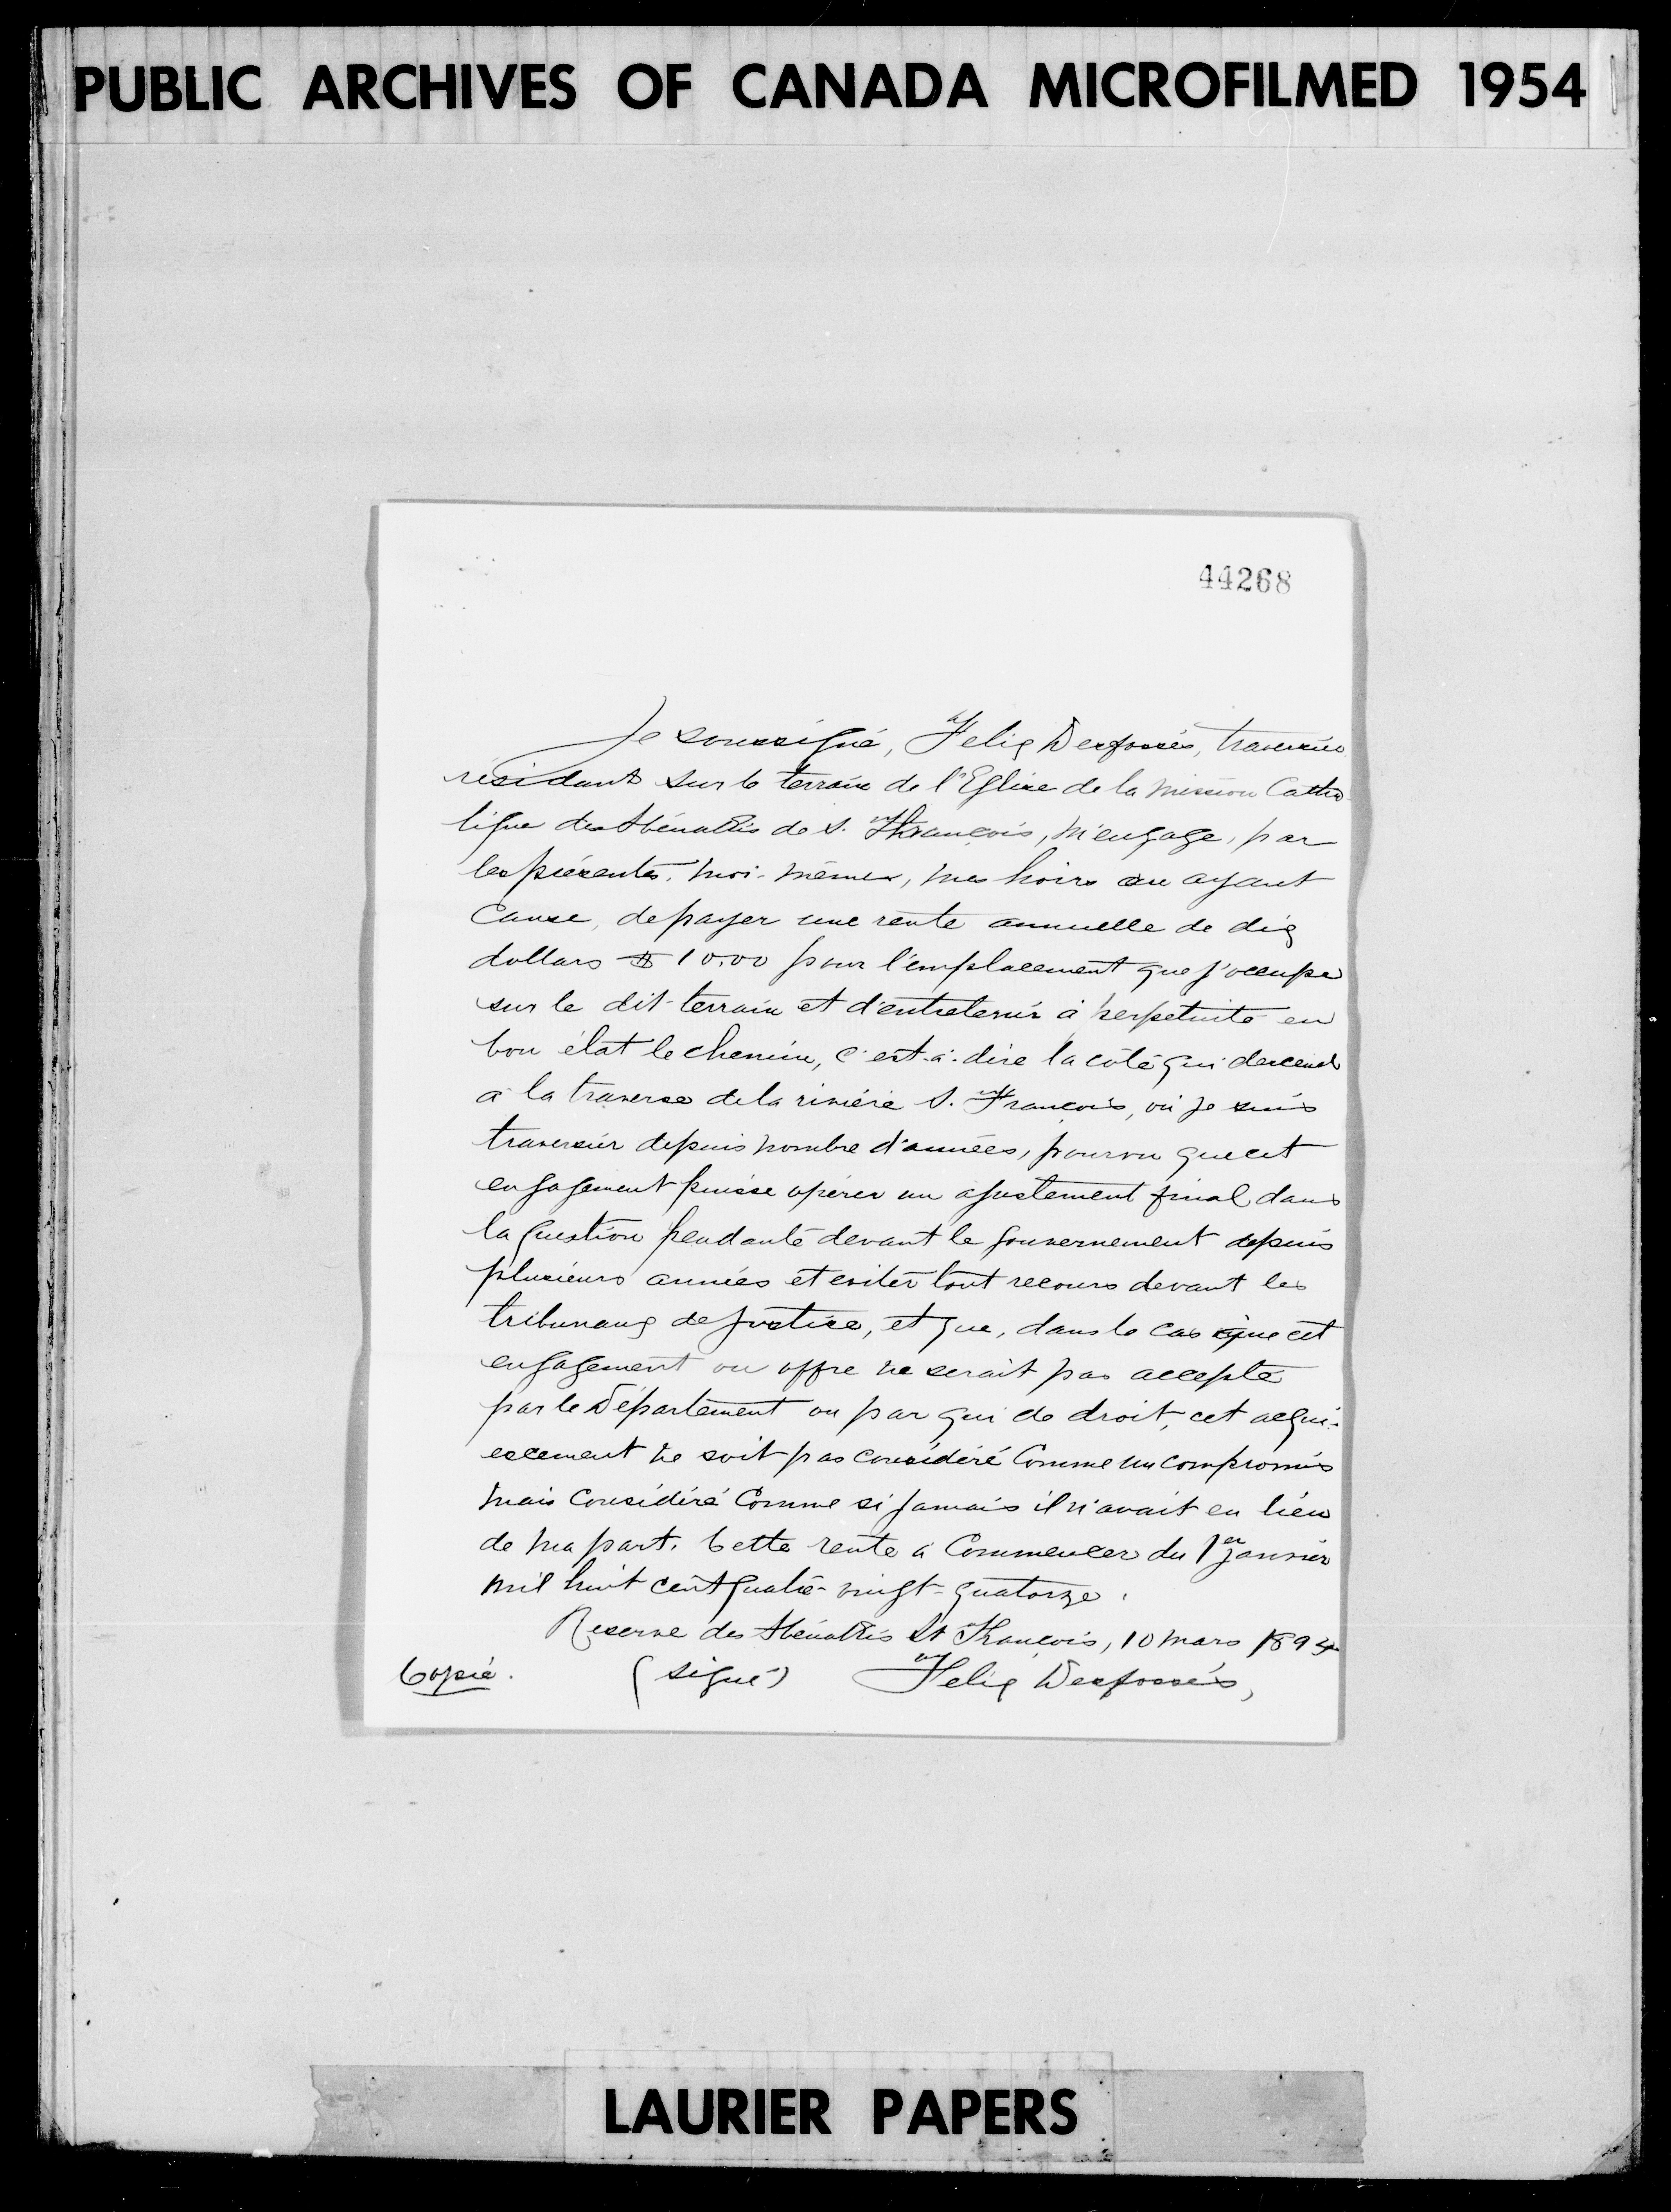 PUBLIC ARCHIVES OF CANADA MICROFILMED 1954
44268
Je soussigné, Felix Desfossés, traversier
résidant sur le terrain de l'Eglise de la mission Catho
lique des Abénakis de S. François, m'engage, par
les présentes, moi-même, mes hoirs ou ayant
cause, de payer une rente annuelle de dix
dollars $10.00 pour l'emplacement que j'occupe
sur le dit terrain et d'entretenir à perpetuité en
bon état le chemin, c'est-à-dire la côte qui descend
à la traverse de la rivière S. François, où je suis
traversier depuis nombre d'années, pourvu que cet
engagement puisse opérer un ajustement final dans
la question pendante devant le gouvernement depuis
plusieurs années et eviter tout recours devant les
tribunaux de justice, et que, dans le cas que cet
engagement ou offre ne serait pas accepté
par le Département ou par qui de droit, cet acqui-
escement ne soit pas considéré comme un compromis
mais considéré comme si jamais il n'avait eu lieu
de ma part. Cette rente à commencer du 1er janvier
mil huit cent quatre-vingt-quatorze.
Reserve des Abénakis St François, 10 mars 1894
Copié. (signé) Felix Desfossés,
LAURIER PAPERS